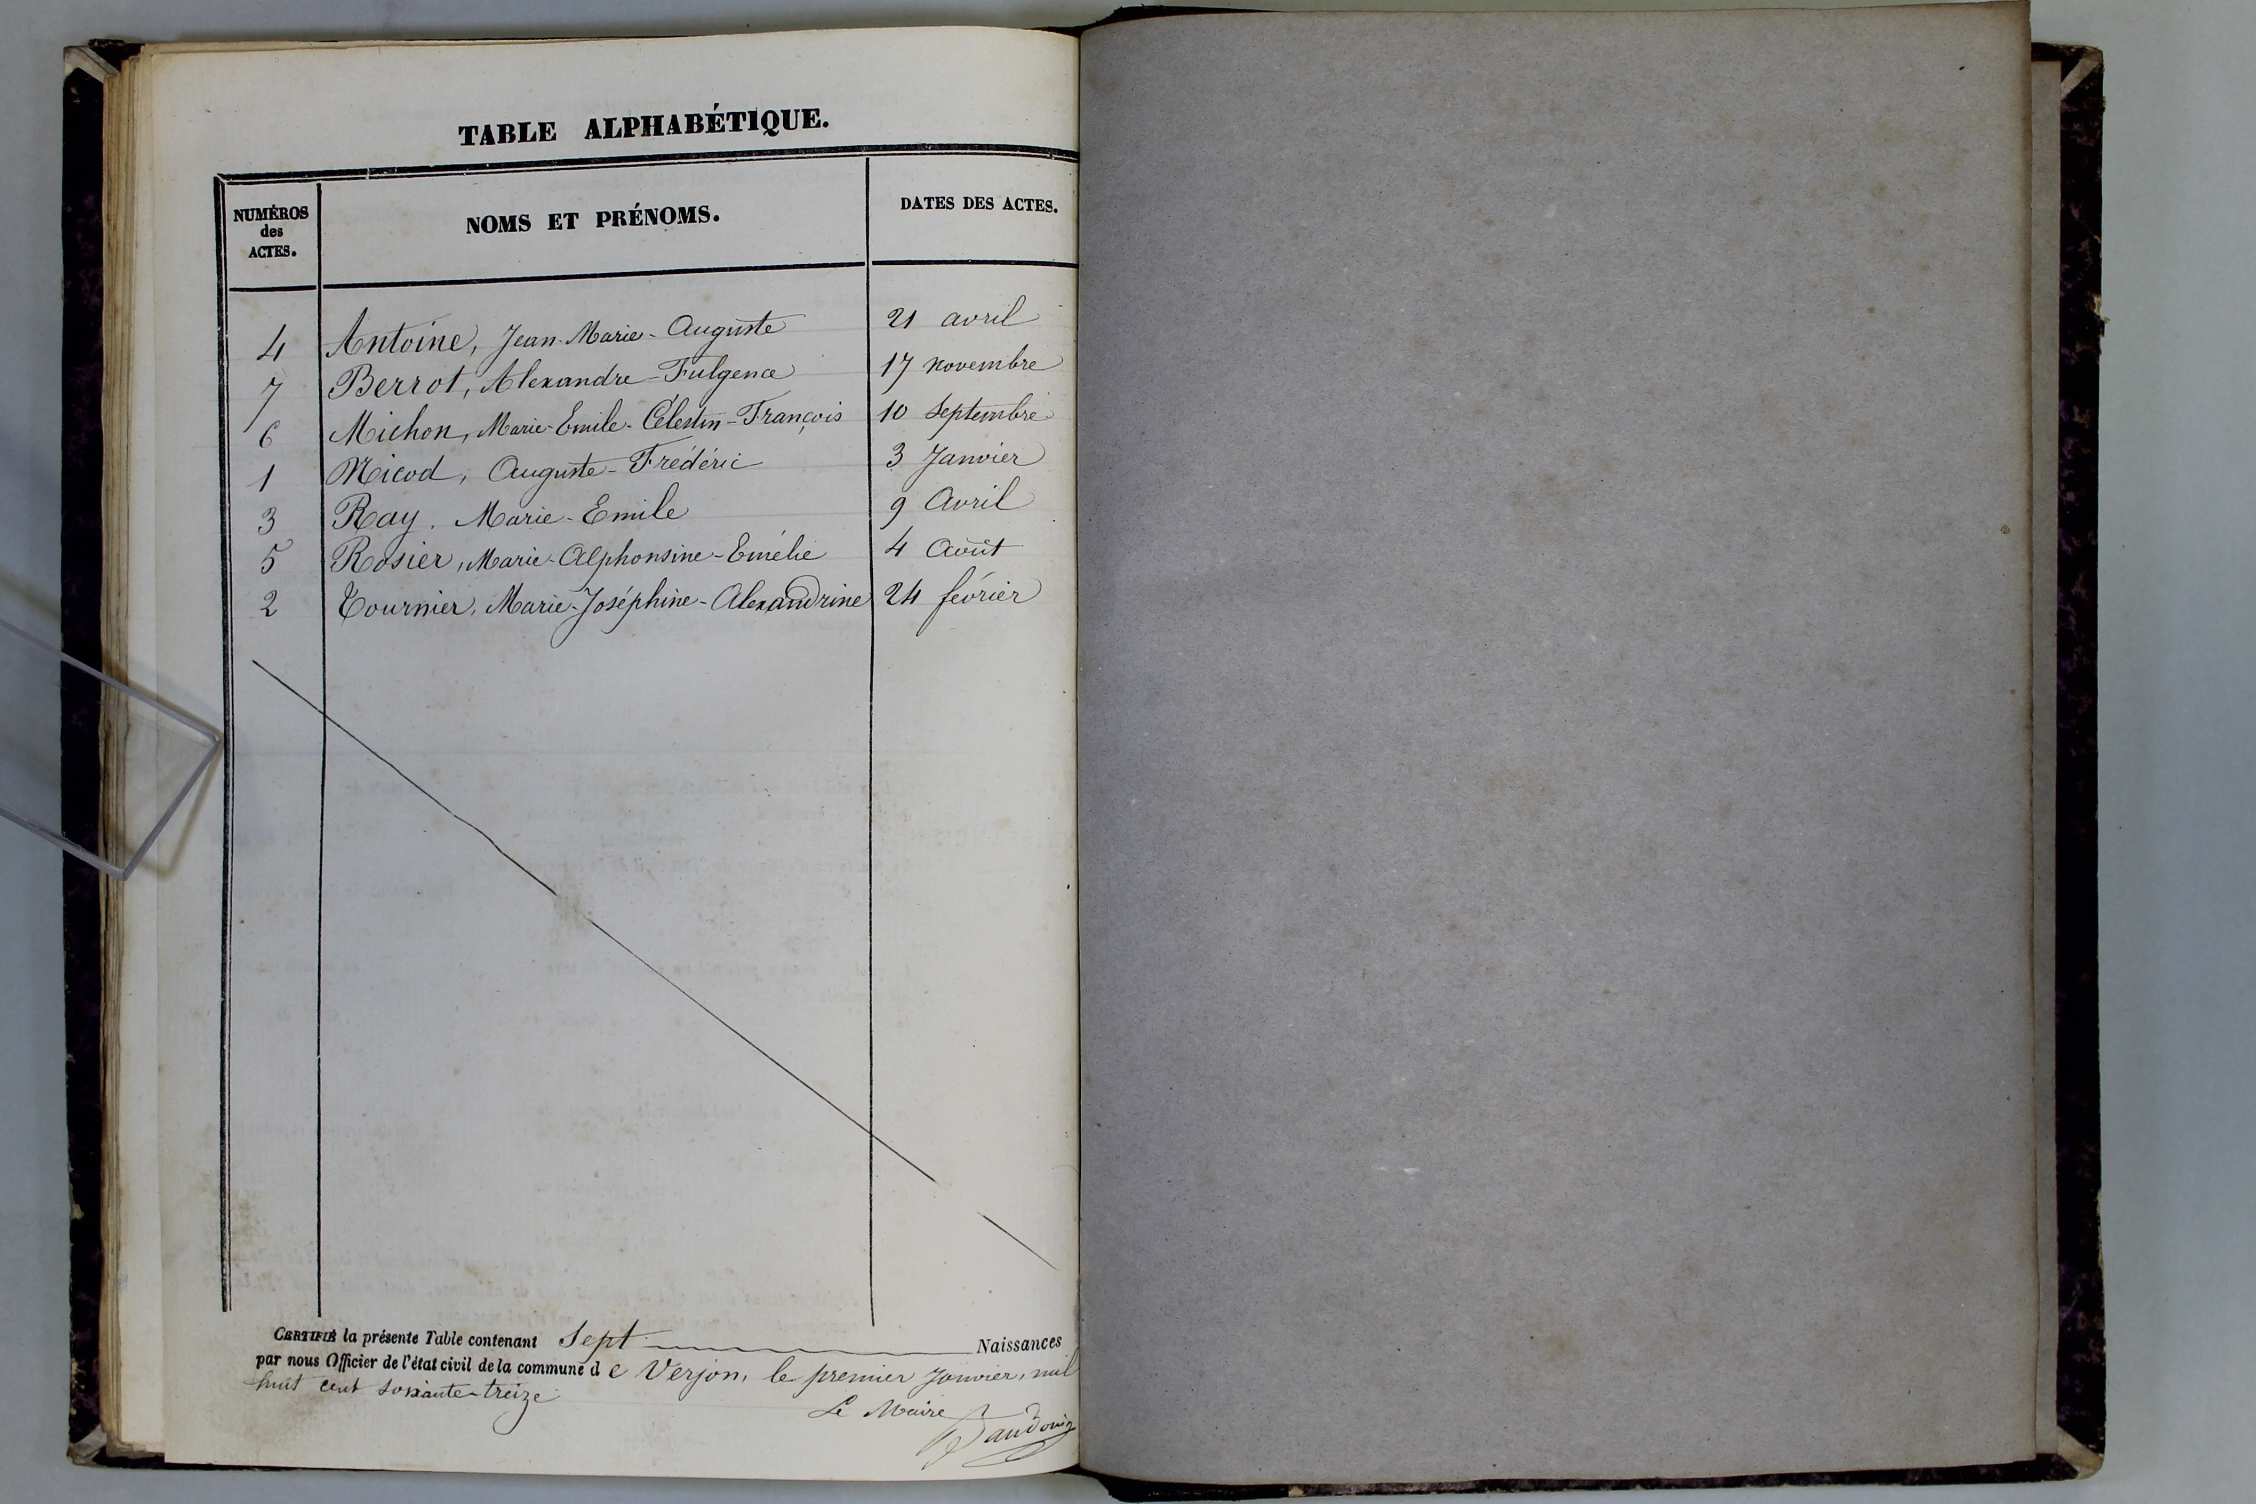 TABLE ALPHABÉTIQUE.
NUMÉROS
des
ACTES.
NOMS ET PRÉNOMS.
DATES DES ACTES.
4 Antoine, Jean-Marie-Auguste 21 avril
7 Berrot, Alexandre-Fulgence 17 novembre
6 Michon, Marie-Emile-Célestin-François 10 Septembre
1 Nicod, Auguste-Frédéric 3 Janvier
3 Ray. Marie-Emile 9 Avril
5 Rosier, Marie-Alphonsine-Emélie 4 Août
2 Tournier, Marie-Joséphine-Alexandrine 24 février
CERTIFIÉ la présente Table contenant Sept Naissances
par nous Officier de l'état civil de la commune d e Verjon, le premier Janvier, mil
huit cent soixante-treize
Le Maire
Baudouin